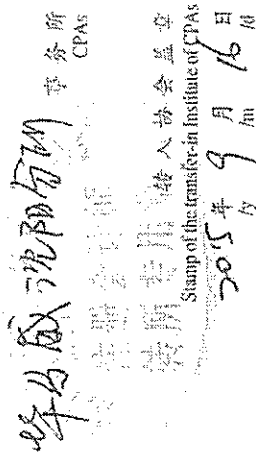 毕马威沈阳分所 事务所
CPAs
转入协会盖章
Stamp of the transfer-in Institute of CPAs
2015年9月16日
/y /m /d